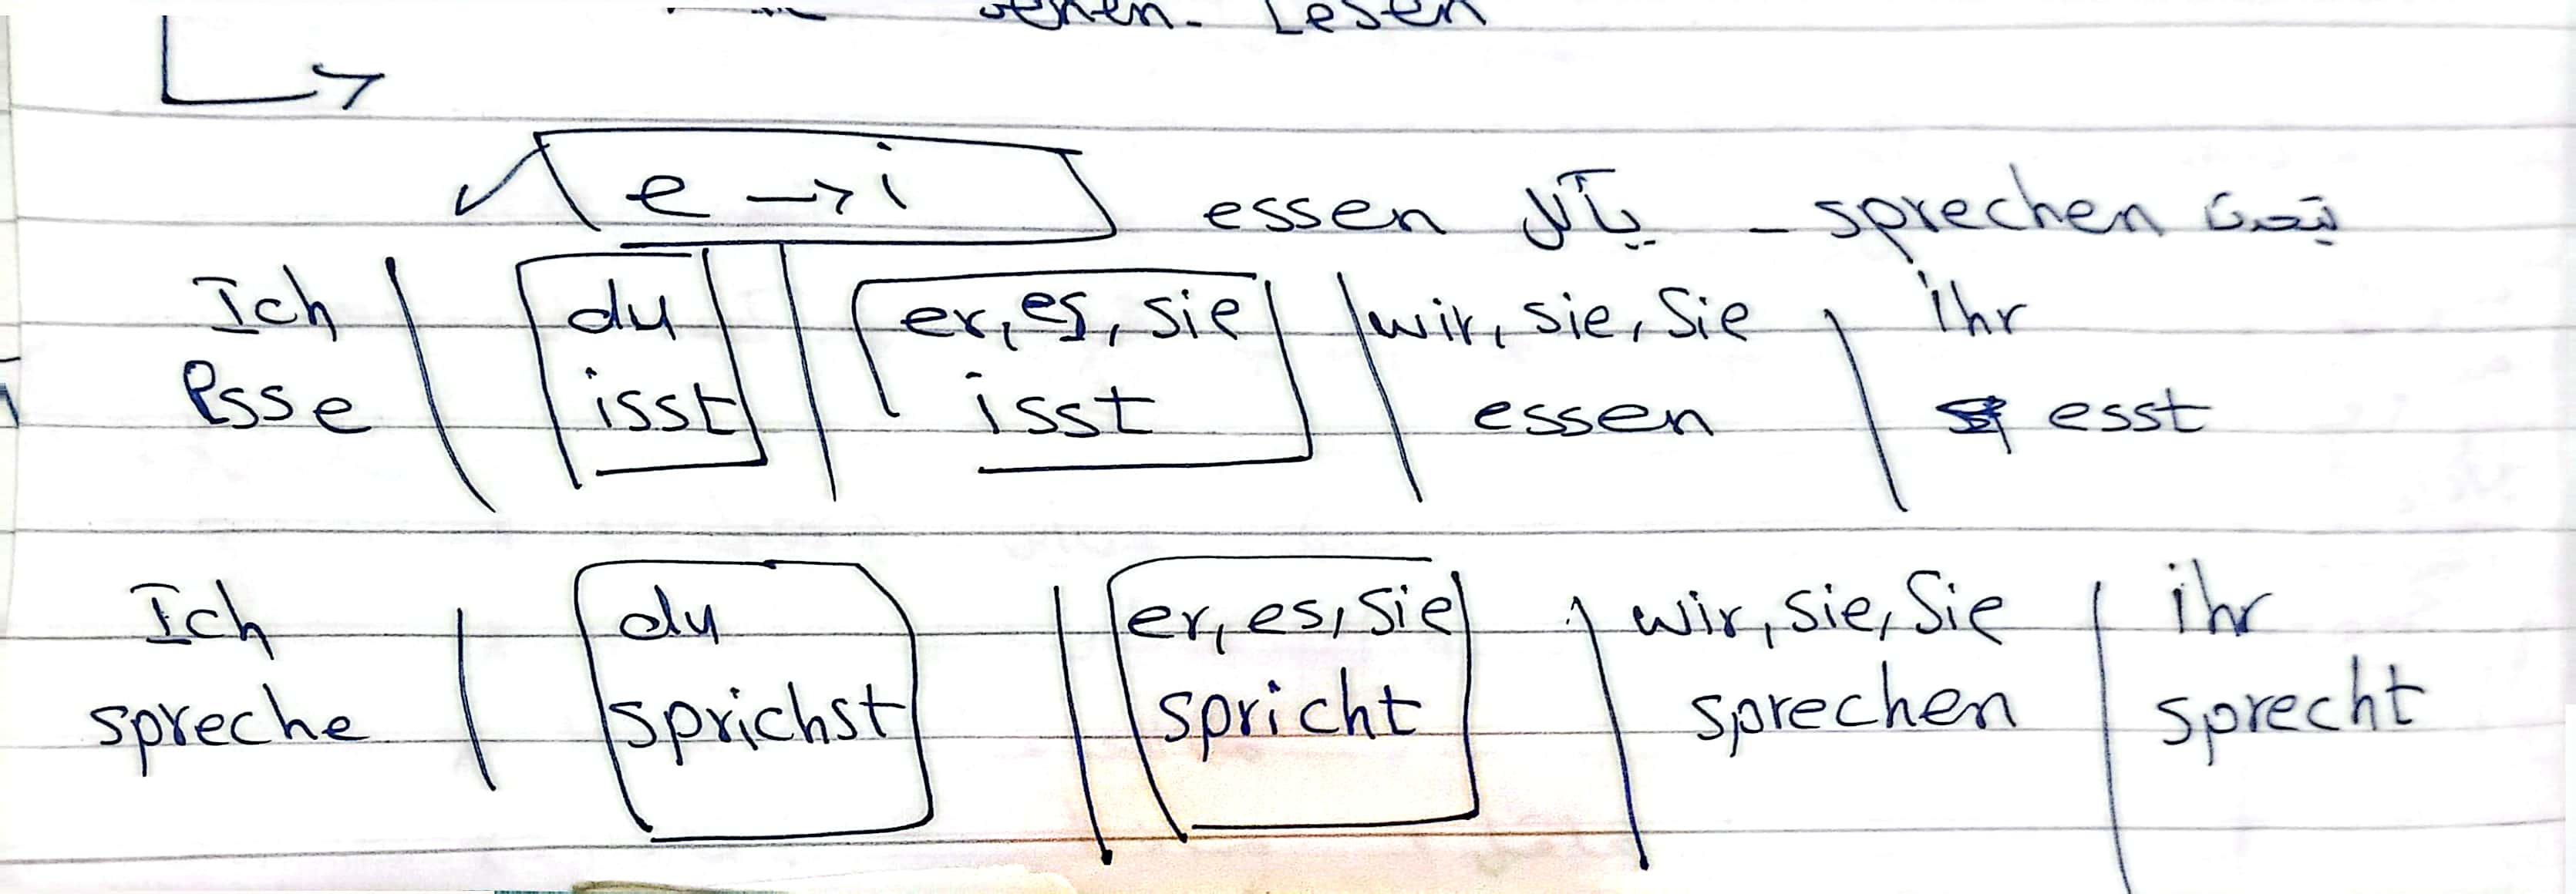 Lesen
e → i essen يأكل - sprechen يتحدث
Ich | du | er, es, sie | wir, sie, Sie | ihr
esse | isst | isst | essen | esst
Ich | du | er, es, sie | wir, sie, Sie | ihr
spreche | sprichst | spricht | sprechen | sprecht